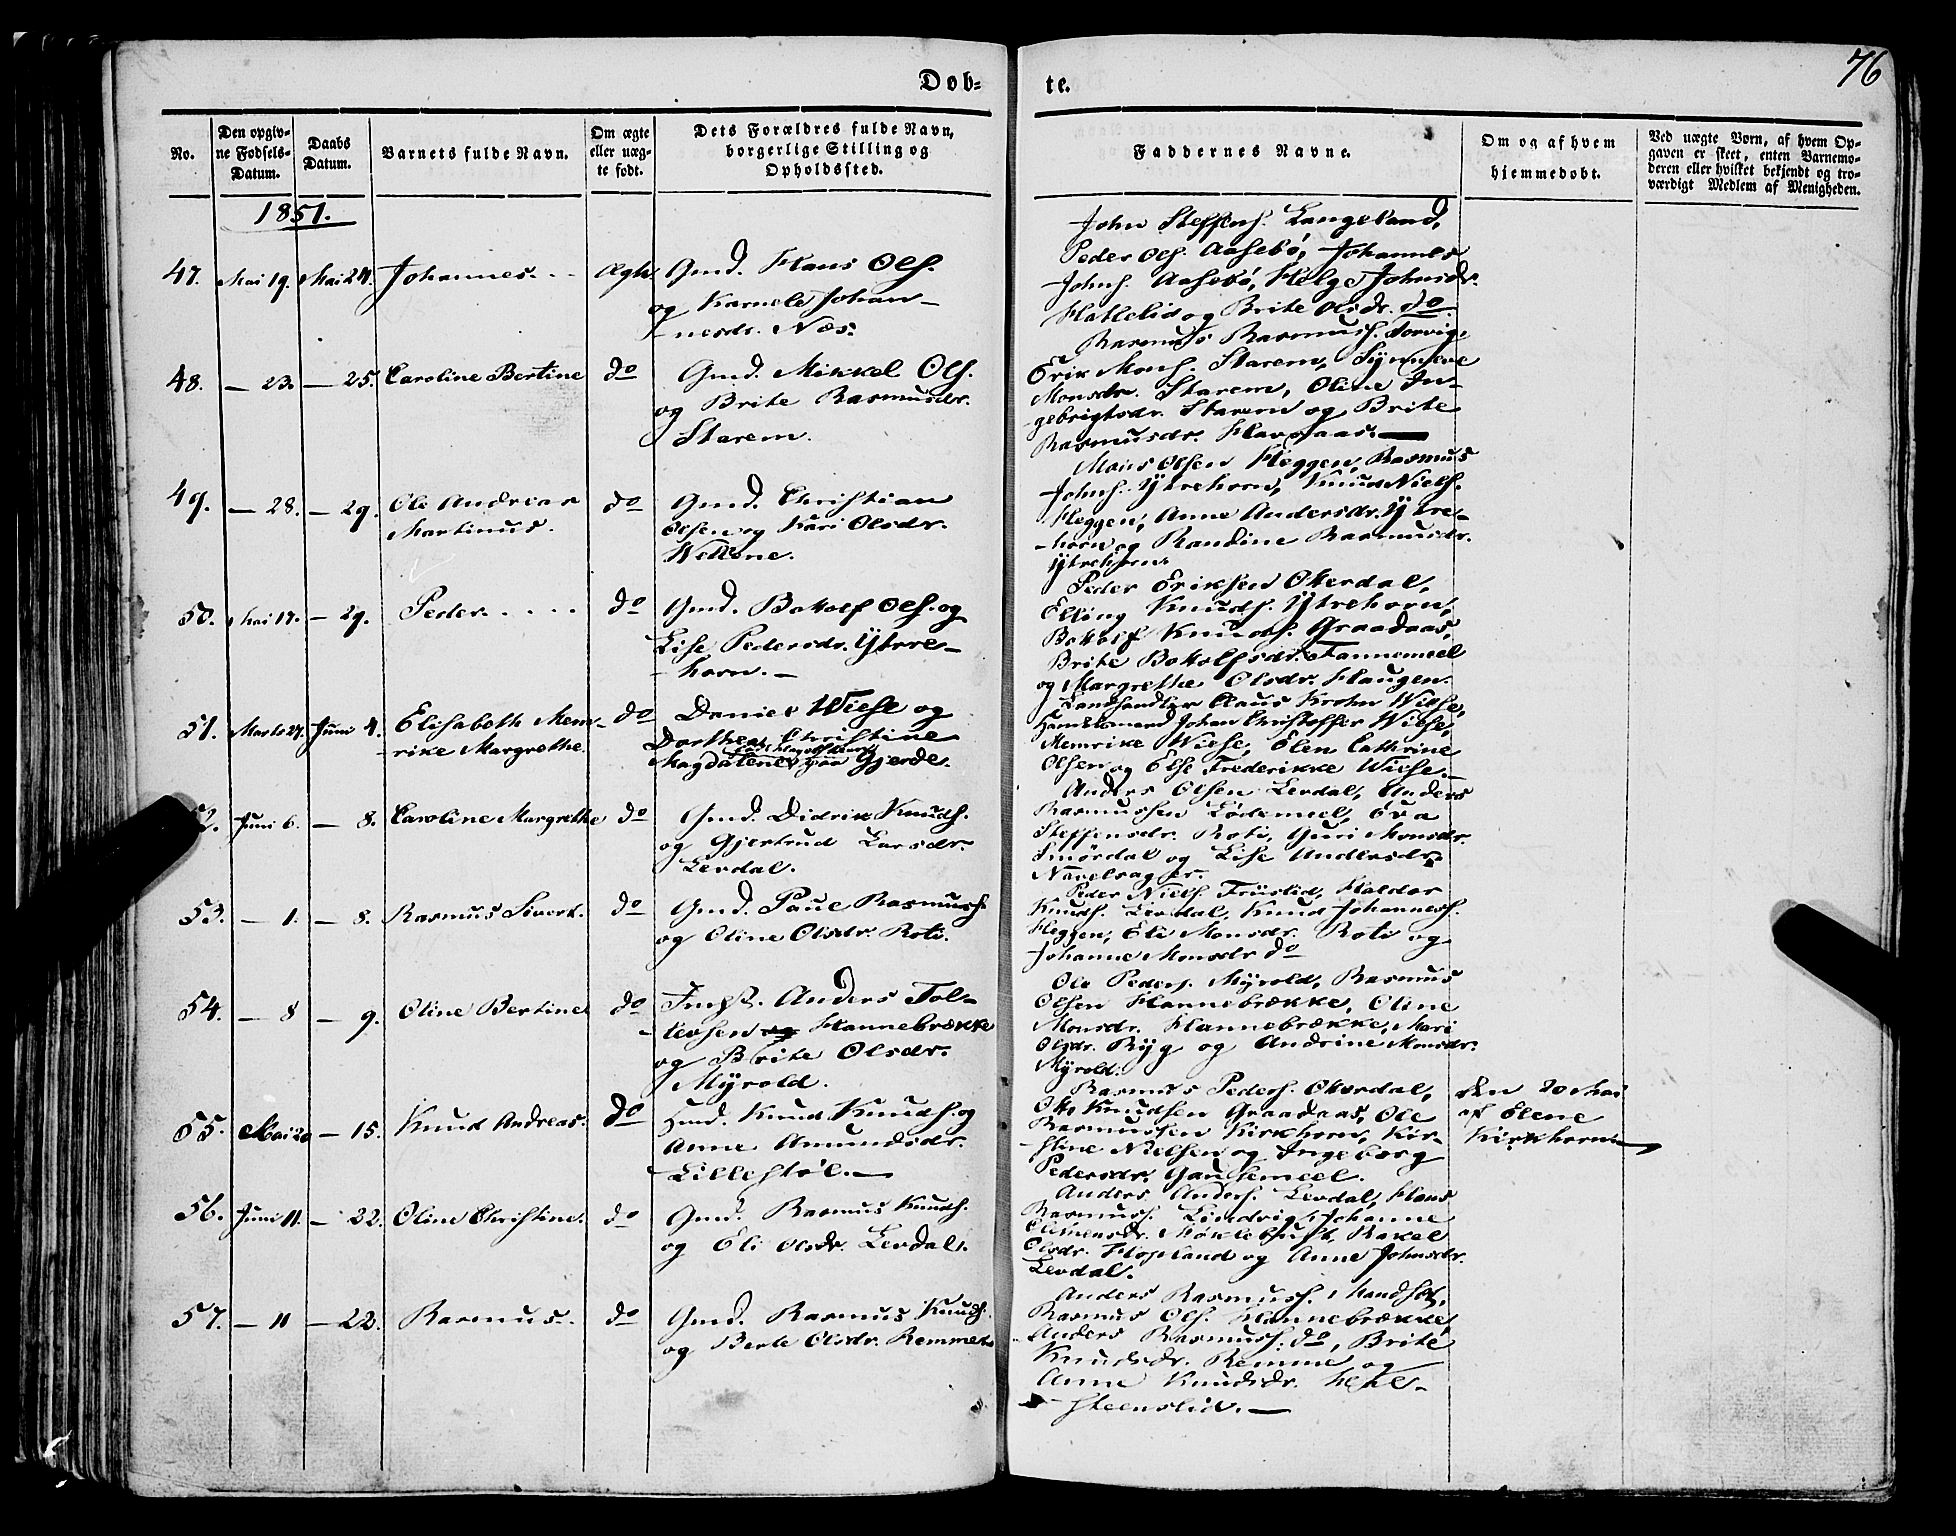 76
Døb-
te.
No.
Den opgiv-
ne Fødsels-
Datum.
Daabs
Datum.
Barnets fulde Navn.
Om ægte
eller uæg-
te født.
Dets Forældres fulde Navn,
borgerlige Stilling og
Opholdssted.
Faddernes Navne.
Om og af hvem
hjemmedøbt.
Ved uægte Børn, af hvem Op-
gaven er skeet, enten Barnemo-
deren eller hvilket bekjendt og tro-
værdigt Medlem af Menigheden.
1851.
47. Mai 19. Mai 24. Johannes. Ægte Gmd. Hans Ols.
og Karnele Johan-
nesdr. Næs.
John Steffens. Langeland,
Peder Ols. Aasebø, Johannes
Johns. Aasebø, Helge Johnsdr.
Hatlelid og Brite Olsdr. do.
48. — 23. — 25. Caroline Bertine do Gmd. Mikkel Ols.
og Brite Rasmusdr.
Starem.
Rasmus Rasmuss. Torvig,
Erik Mons. Starem, Synneve
Monsdr. Starem, Oline In-
gebrigtsdr. Starem og Brite
Rasmusdr. Havraas.
49. — 28. — 29. Ole Andreas
Martinus.
do Gmd. Christian
Olsen og Kari Olsdr.
Wettene.
Mons Olsen Heggen, Rasmus
Johns. Ytrehorn, Knud Niels.
Heggen, Anne Andersdr. Ytre-
horn og Randine Rasmusdr.
Ytrehorn.
50. Mai 17. — 29. Peder. do Gmd. Bottolf Ols. og
Lise Pedersdr. Ytrre-
horn. —
Peder Eriksen Otterdal,
Elling Knuds. Ytrehorn,
Bottolf Knuds. Graadaas,
Brite Bottolfsdr. Tannemeel
og Margrethe Olsdr. Haugen.
51. Marts 27. Juni 4. Elisabeth Mem-
rike Margrethe.
do Daniel Wiese og
Dorthea Christine
Magdalene paa Gjerde.
Landhandler Claus Krohn Wiese,
Handelsmand Johan Christoffer Wiese,
Memrike Wiese, Elen Cathrine
Olsen og Else Frederikke Wiese.
52. Juni 6. — 8. Caroline Margrethe do Gmd. Didrik Knuds.
og Gjertrud Larsdr.
Levdal.
Anders Olsen Levdal, Anders
Rasmussen Lødemeel, Eva
Steffensdr. Roti, Guri Monsdr.
Smørdal og Lise Andersdr.
Navelsager.
53. — 1. — 8. Rasmus Sivert. do Gmd. Paul Rasmuss.
og Oline Olsdr. Roti.
Peder Niels. Fruslid, Haldor
Knuds. Levdal, Knud Johanness.
Heggen, Eli Monsdr. Roti og
Johanne Monsdr do
54. — 8 — 9. Oline Bertine do Indst. Anders Tol-
levsen og Hannebrække
og Brite Olsdr.
Myrold.
Ole Peders. Myrold, Rasmus
Olsen Hannebrække, Oline
Monsdr. Hannebrække, Mari
Olsdr. Ryg og Andrine Monsdr.
Myrold.
55. Mai 20 — 15. Knud Andreas. do Hmd. Knud Knuds. og
Anne Amundsdr.
Lillestøl. —
Rasmus Peders. Otterdal,
Otto Knudsen Graadaas, Ole
Rasmussen Kirkhorn, Kir-
stine Nielsen og Ingeborg
Pedersdr. Gausemeel.
den 20 Mai
af Elene
Kirkhorn
56. Juni 11. — 22. Oline Christine. do Gmd. Rasmus Knuds.
og Eli Olsdr. Levdal.
Anders Anders. Levdal, Hans
Rasmuss. Lindvig, Johanne
Clemensdr. Møklebust, Rakel
Olsdr. Hopland og Anne Johnsdr.
Levdal.
57. — 11 — 22. Rasmus. do Gmd. Rasmus Knuds.
og Berte Olsdr. Remme
Anders Rasmuss. Mandhol,
Rasmus Ols. Hannebrække,
Anders Rasmuss. do, Brite
Knudsdr. Remme og
Anne Knudsdr.
steenslid. —